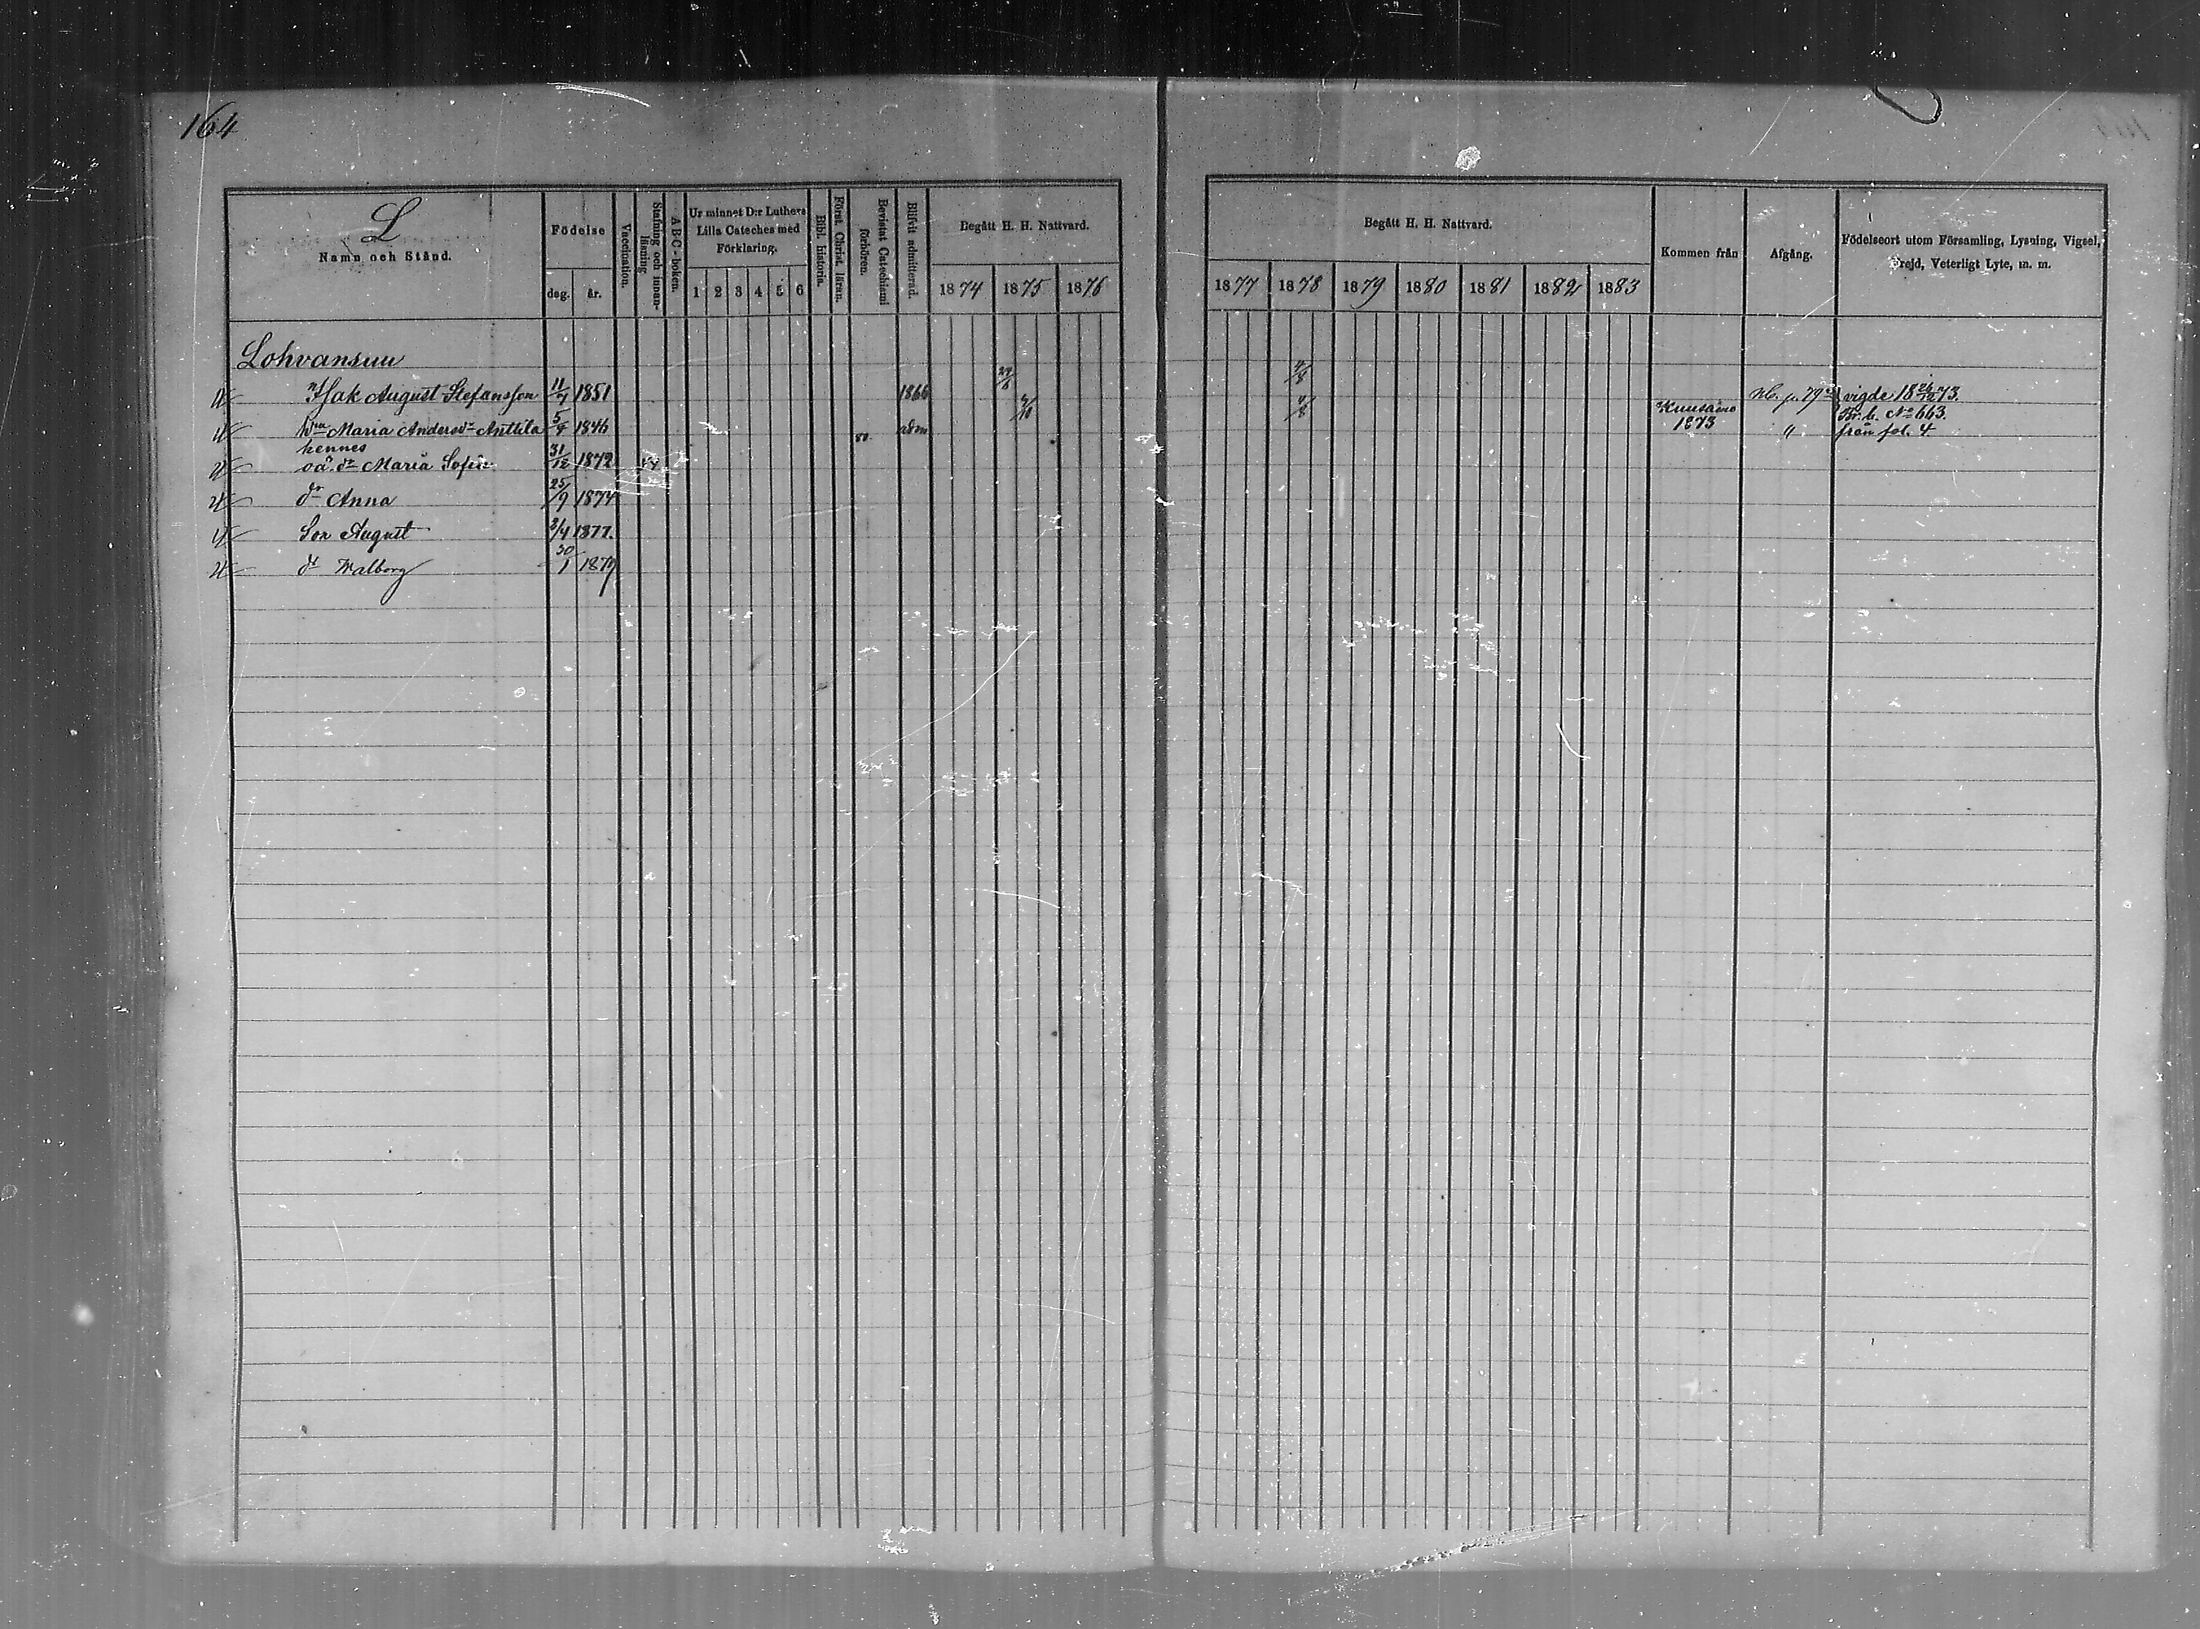 164
L
Namn och Stånd.
Födelse
dag. år.
Vaccination.
Stafning och innan-läsning.
A B C - boken.
Ur minnet D:r Luthers
Lilla Cateches med
Förklaring.
1 2 3 4 5 6
Bibl. historia.
Först. Christ. läran.
Bevistat Catechismi förhören.
Blifvit admitterad.
Begått H. H. Nattvard.
1874 1875 1876
Begått H. H. Nattvard.
1877 1878 1879 1880 1881 1882 1883
Kommen från
Afgång.
Födelseort utom Församling, Lysning, Vigsel,
Frejd, Veterligt Lyte, m. m.
Lohvansuu
Isak August Stefansson 11/7 1851 1866 vigde 18 26/12 73.
Maria Andersdr Anttila 5/4 1846 80 adm Kuusamo 1873 " Br. b. No 663.
från fol. 4
hennes
oä. dr Maria Sofia 31/12 1872
dr Anna 25/9 1874
Son August 2/4 1877.
dr Walborg 30/1 1879